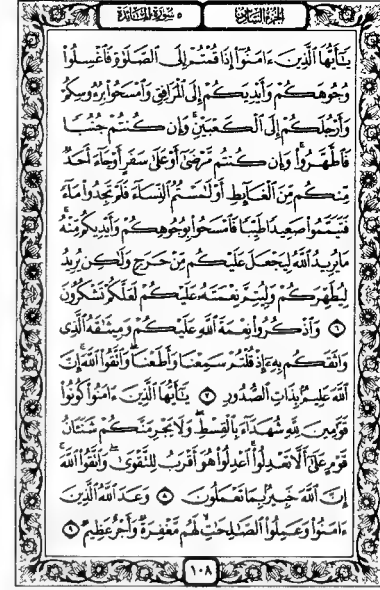 الجزء السادس ٥ سورة المائدة
يَٰٓأَيُّهَا ٱلَّذِينَ ءَامَنُوٓا۟ إِذَا قُمْتُمْ إِلَى ٱلصَّلَوٰةِ فَٱغْسِلُوا۟
وُجُوهَكُمْ وَأَيْدِيَكُمْ إِلَى ٱلْمَرَافِقِ وَٱمْسَحُوا۟ بِرُءُوسِكُمْ
وَأَرْجُلَكُمْ إِلَى ٱلْكَعْبَيْنِ ۚ وَإِن كُنتُمْ جُنُبًا
فَٱطَّهَّرُوا۟ ۚ وَإِن كُنتُم مَّرْضَىٰٓ أَوْ عَلَىٰ سَفَرٍ أَوْ جَآءَ أَحَدٌ
مِّنكُم مِّنَ ٱلْغَآئِطِ أَوْ لَٰمَسْتُمُ ٱلنِّسَآءَ فَلَمْ تَجِدُوا۟ مَآءً
فَتَيَمَّمُوا۟ صَعِيدًا طَيِّبًا فَٱمْسَحُوا۟ بِوُجُوهِكُمْ وَأَيْدِيكُم مِّنْهُ ۚ
مَا يُرِيدُ ٱللَّهُ لِيَجْعَلَ عَلَيْكُم مِّنْ حَرَجٍ وَلَٰكِن يُرِيدُ
لِيُطَهِّرَكُمْ وَلِيُتِمَّ نِعْمَتَهُۥ عَلَيْكُمْ لَعَلَّكُمْ تَشْكُرُونَ
٦ وَٱذْكُرُوا۟ نِعْمَةَ ٱللَّهِ عَلَيْكُمْ وَمِيثَٰقَهُ ٱلَّذِى
وَاثَقَكُم بِهِۦٓ إِذْ قُلْتُمْ سَمِعْنَا وَأَطَعْنَا ۖ وَٱتَّقُوا۟ ٱللَّهَ ۚ إِنَّ
ٱللَّهَ عَلِيمٌۢ بِذَاتِ ٱلصُّدُورِ ٧ يَٰٓأَيُّهَا ٱلَّذِينَ ءَامَنُوا۟ كُونُوا۟
قَوَّٰمِينَ لِلَّهِ شُهَدَآءَ بِٱلْقِسْطِ ۖ وَلَا يَجْرِمَنَّكُمْ شَنَـَٔانُ
قَوْمٍ عَلَىٰٓ أَلَّا تَعْدِلُوا۟ ۚ ٱعْدِلُوا۟ هُوَ أَقْرَبُ لِلتَّقْوَىٰ ۖ وَٱتَّقُوا۟ ٱللَّهَ ۚ
إِنَّ ٱللَّهَ خَبِيرٌۢ بِمَا تَعْمَلُونَ ٨ وَعَدَ ٱللَّهُ ٱلَّذِينَ
ءَامَنُوا۟ وَعَمِلُوا۟ ٱلصَّٰلِحَٰتِ ۙ لَهُم مَّغْفِرَةٌ وَأَجْرٌ عَظِيمٌ ٩
١٠٨